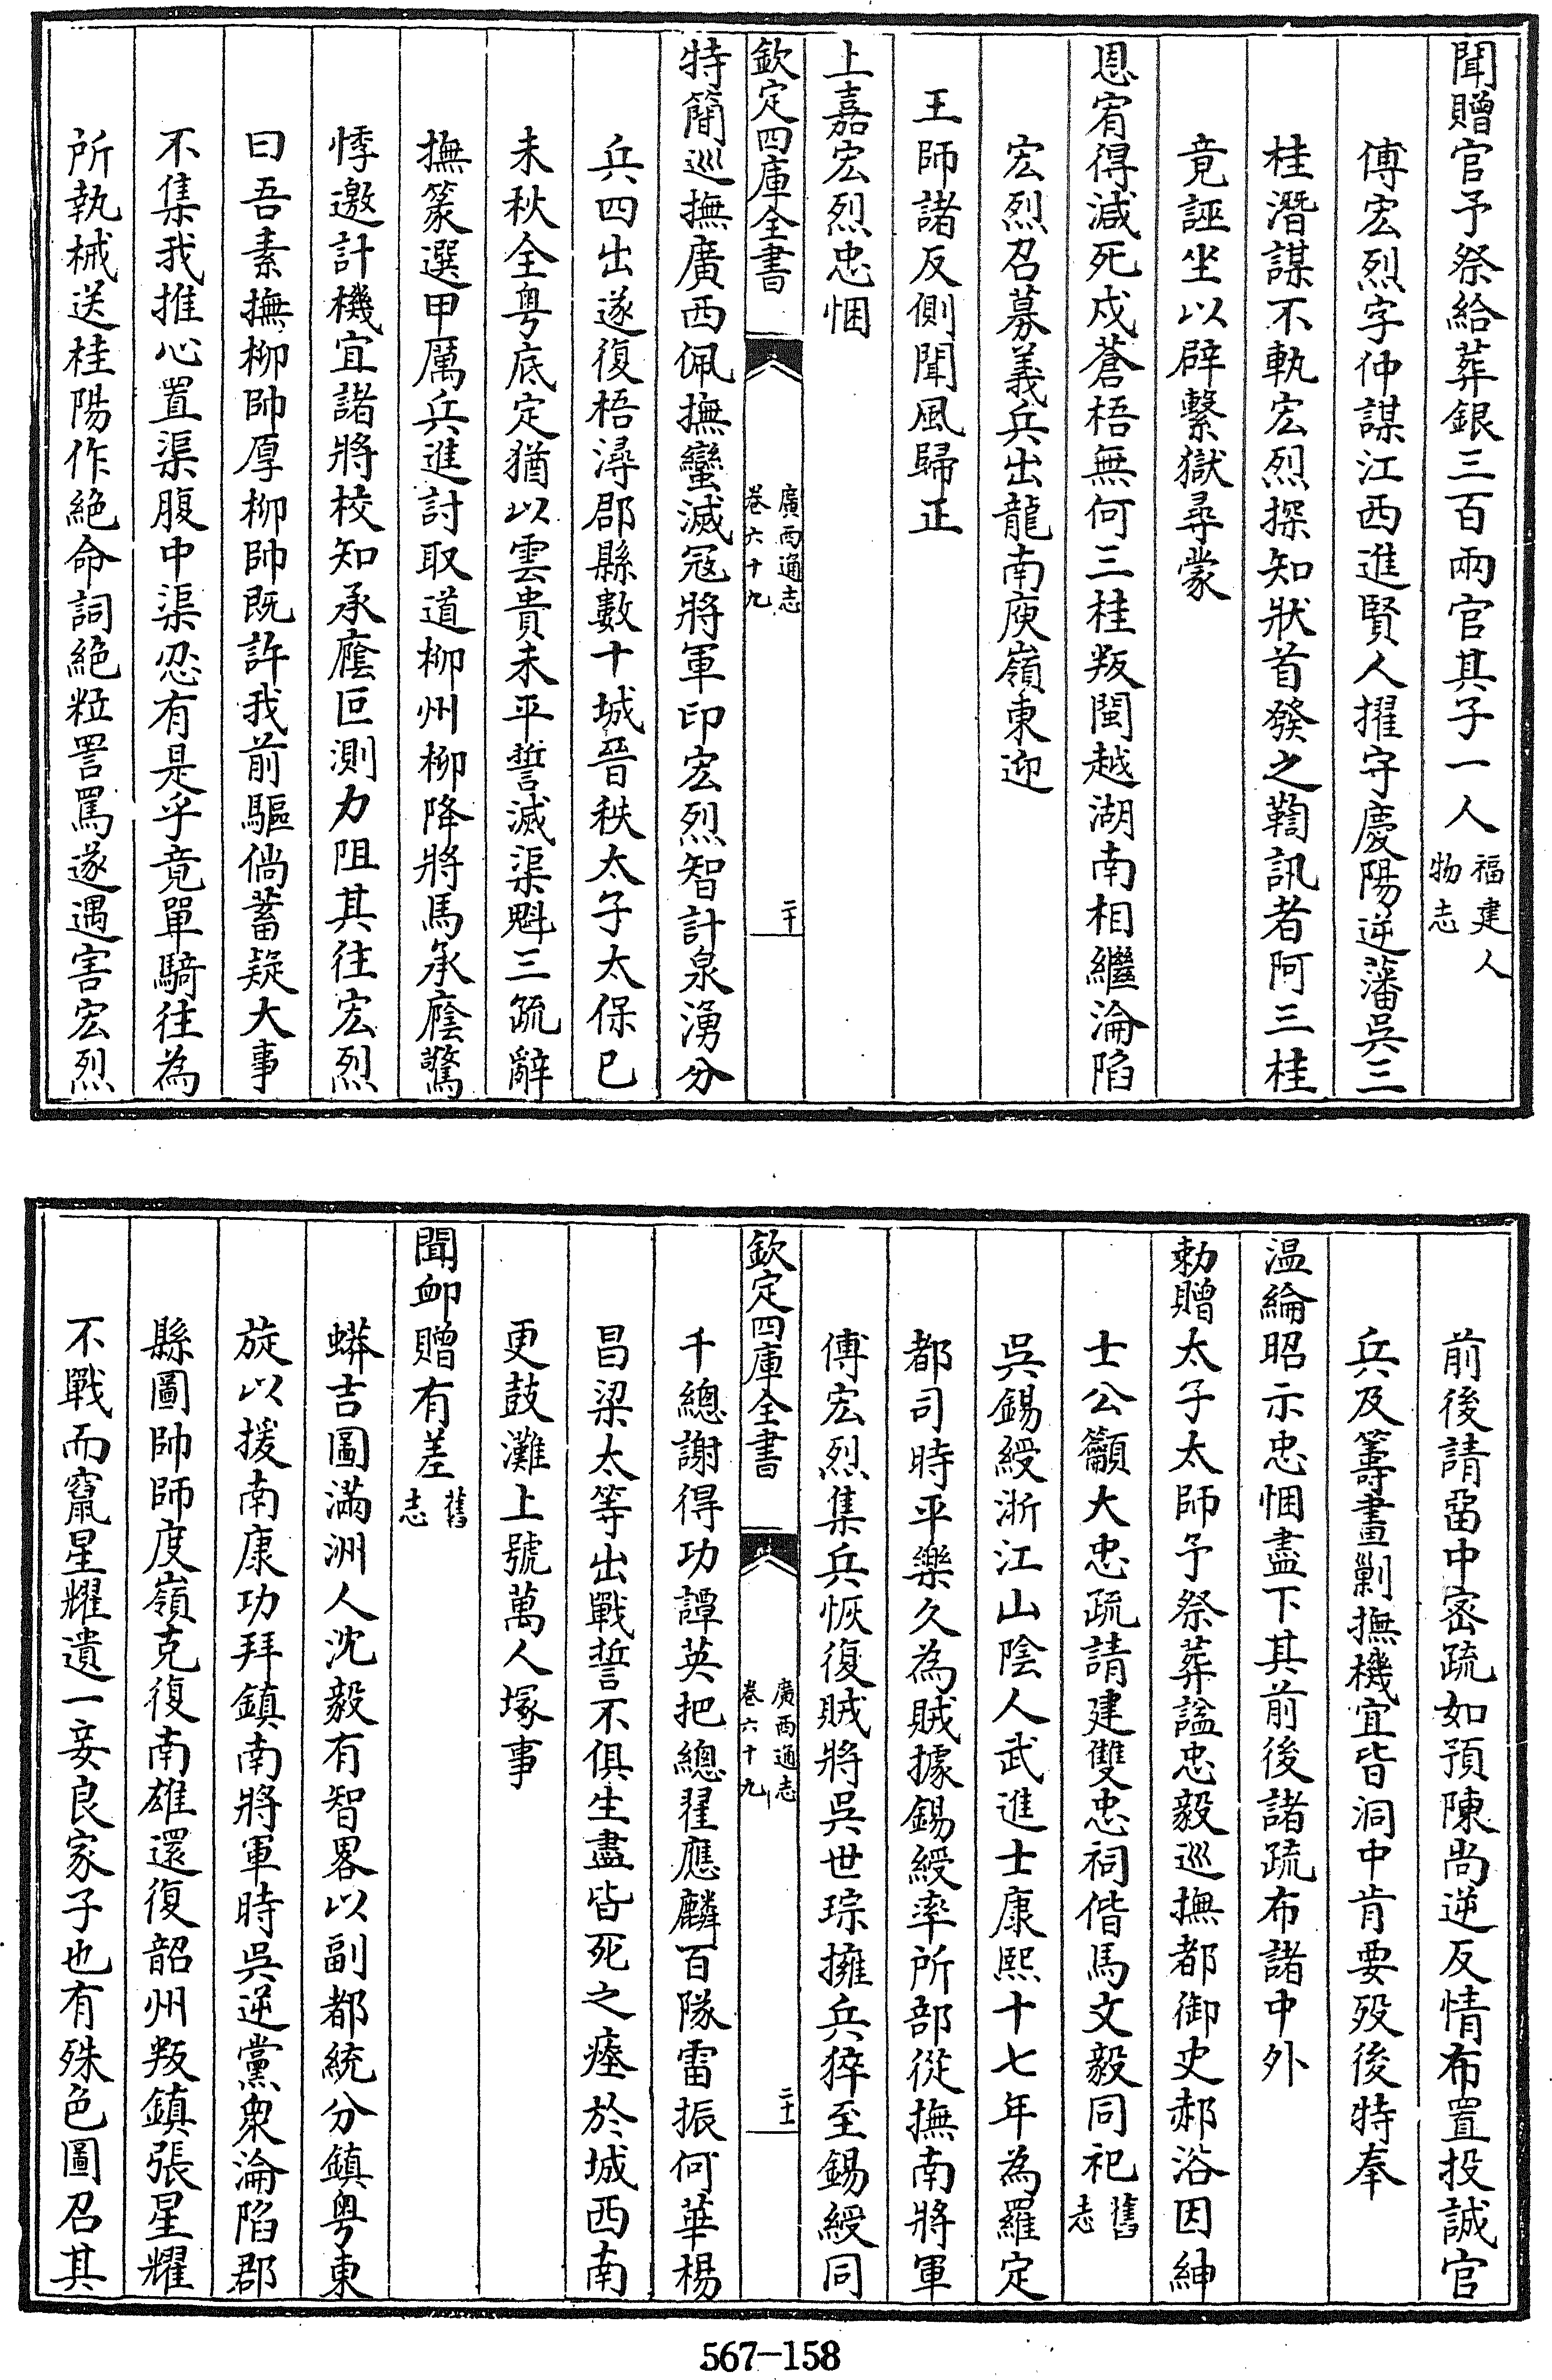 聞贈官予祭給葬銀三百兩官其子一人福建人物志
傅宏烈字仲謀江西進賢人擢守慶陽逆藩吳三
桂潛謀不軌宏烈探知狀首發之鞫訊者阿三桂
竟誣坐以辟繫獄尋蒙
恩宥得減死戍蒼梧無何三桂叛閩越湖南相繼淪陷
宏烈召募義兵出龍南庾嶺東迎
王師諸反側聞風歸正
上嘉宏烈忠悃
欽定四庫全書 廣西通志卷六十九 二十
特簡巡撫廣西佩撫蠻滅冦將軍印宏烈智計泉湧分
兵四出遂復梧潯郡縣數十城晉秩太子太保已
未秋全粤底定猶以雲貴未平誓滅渠魁三疏辭
撫篆選甲厲兵進討取道柳州柳降將馬承廕驚
悸邀計機宜諸將校知承廕叵測力阻其往宏烈
曰吾素撫柳帥厚柳帥既許我前驅倘蓄疑大事
不集我推心置渠腹中渠忍有是乎竟單騎往為
所執械送桂陽作絶命詞絕粒詈罵遂遇害宏烈
前後請留中密疏如預陳尚逆反情布置投誠官
兵及籌畫剿撫機宜皆洞中肯要歿後特奉
温綸昭示忠悃盡下其前後諸疏布諸中外
勅贈太子太師予祭葬諡忠毅巡撫都御史郝浴因紳
士公籲大忠疏請建雙忠祠偕馬文毅同祀舊志
吳錫綬浙江山陰人武進士康熙十七年為羅定
都司時平樂久為賊據錫綬率所部從撫南將軍
傅宏烈集兵恢復賊將吳世琮擁兵猝至錫綬同
欽定四庫全書 廣西通志卷六十九 二十一
千總謝得功譚英把總翟應麟百隊雷振何華楊
昌梁太等出戰誓不俱生盡皆死之瘞於城西南
更鼓灘上號萬人塚事
聞卹贈有差舊志
蟒吉圖滿洲人沈毅有智畧以副都統分鎮粤東
旋以援南康功拜鎮南將軍時吳逆黨衆淪陷郡
縣圖帥師度嶺克復南雄還復韶州叛鎮張星耀
不戰而竄星耀遺一妾良家子也有殊色圖召其
567-158